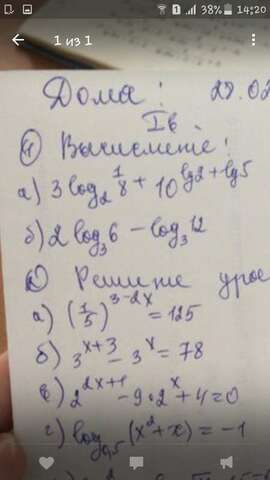 38% 14:20
1 из 1
Дома: 28.02
Iв.
① Вычислите:
а) 3 log₂ 1/8 + 10^(lg2 + lg5)
б) 2 log₃ 6 − log₃ 12
② Решите урав
а) (1/5)^(3−2x) = 125
б) 3^(x+3) − 3^x = 78
в) 2^(2x+1) − 9·2^x + 4 = 0
г) log₀,₅ (x² + x) = −1